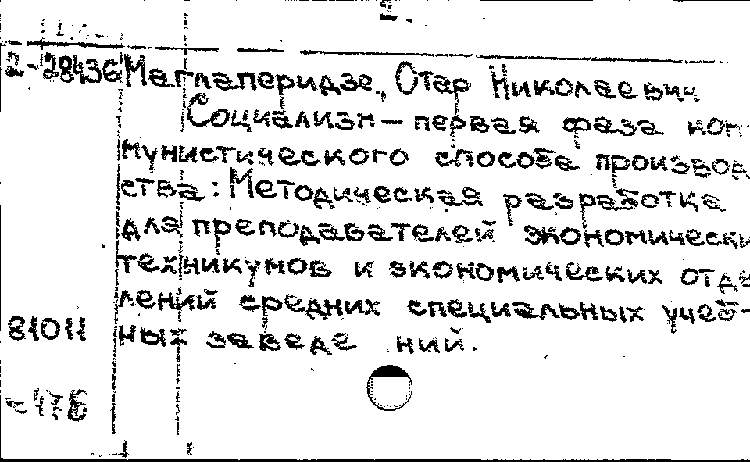 2.
2-28436 Маглаперидзе, Отар Николаевич
Социализм — первая фаза ком-
мунистического способа производ
ства: Методическая разработка
для преподавателей экономически
техникумов и экономических отде
лений средних специальных учеб-
81011 ных заведе ний.
-476